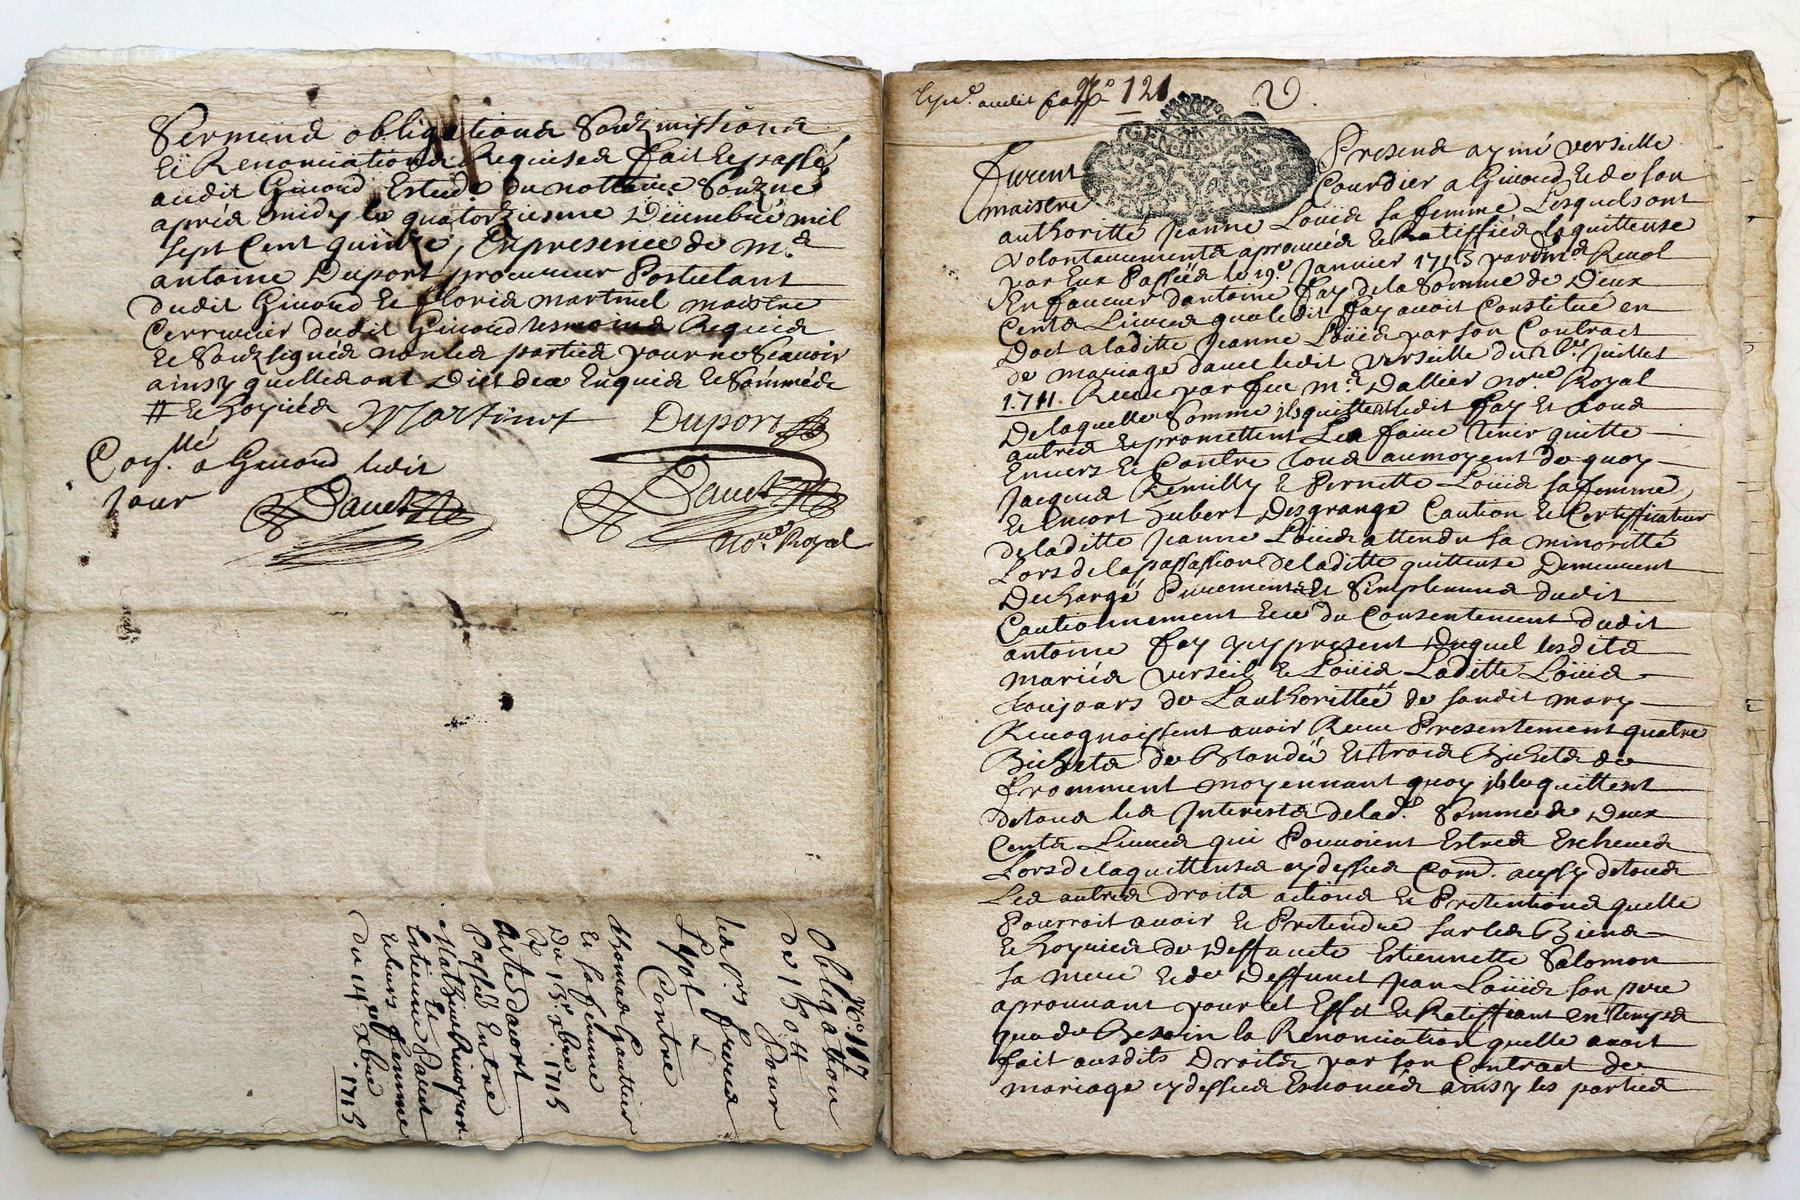 Serment obligations Soubzmissions
Et Renonciations Requises fait et passé
audit Giuord Estude du nottaire Soubzné
aprés midy le quatorziesme Decembre mil
sept Cent quinze, En presence de M.e
antoine Duport procureur Postulant
dudit Giuord et Martinet maistre
Cerrurier dudit Giuord tesmoins Requis
Et Soubzsignés non les parties pour ne Scauoir
ainsy quelles ont Dict de ce Enquis et Sommés
# et hoyries Martinet Duport
a Giuord ledit
Jour
No.re Royal
No. 117
Obligation
de 150 ₶
Pour
freres
Contre
thomas Gautier
et sa femme
Du 1715
Acte daccort
Passé Entre
Et
Estienne
et leurs femme
du 14.e Xbre 1715
No 121
furent Presens aymé verseille
maistre Courdier a Giuord et de son
authoritté Jeanne Loüis sa femme Lesquels ont
volontairement aprouués et Ratiffiés la quittense
par Eux Passée le 19.e Januier 1715 par deuant Me Reuol
En faueur dantoine fay de la Somme de Deux
Cents Liures que ledit fay auoit Constitué en
Doct a laditte Jeanne Loüis par son Contract
de mariage dauec ledit verseille du Juillet
1711. Receu par feu m.e Dallier no.re Royal
De laquelle Somme ils quittent ledit fay et tous
autres et promettent Les faire tenir quitte
Enuers et Contre tous aumoyent de quoy
Jacques Remilly et Pernette Loüis sa femme
et Encort hubert Desgrange Caution et Certifficateur
de laditte Jeanne Loüis attendu sa minoritté
Lors de la passassion de laditte quittense Demeurent
Dechargé Purement et Simplement dudit
Cautionnement Et ce du Consentement dudit
antoine fay icy present Duquel lesdits
mariés verseil et Loüis Laditte Loüis
toujours de Lauthorittée de sondit mary
Recognoissent auoir Receu Presentement quatre
Bichets de Blondée Et trois Bichets de
fromment moyennant quoy ils le quittent
de tous les Interests de lad.e Somme de Deux
Cents Liures qui Pouuoient Estres Escheues
Lors de la quittense cydessus Com. aussy de tous
Les autres droits actions et Pretentions quelle
Pourroit auoir et Pretendre sur les Biens
Et hoyries de Deffuncte Estiennette Salomon
sa mere et de Deffunct Jean Loüis son pere
aprouuant pour cet Effet et Ratiffiant en temps
que de Besoin la Renonciation quelle auoit
fait ausdits Droits par son Contract de
mariage cydessus Enoncés ainsy les parties